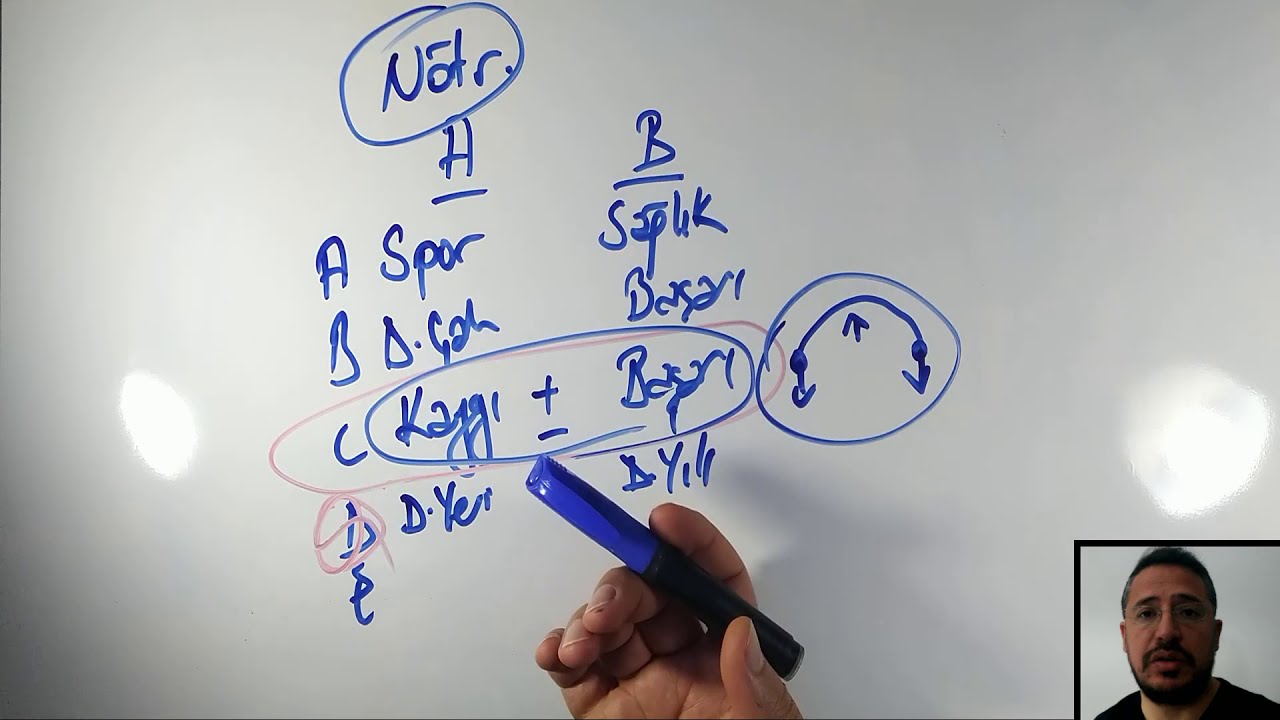 Nötr.
A B
A Spor Sağlık
B D.Çalı Başarı
C Kaygı + - Başarı
D D.Yeri D.Yılı
E